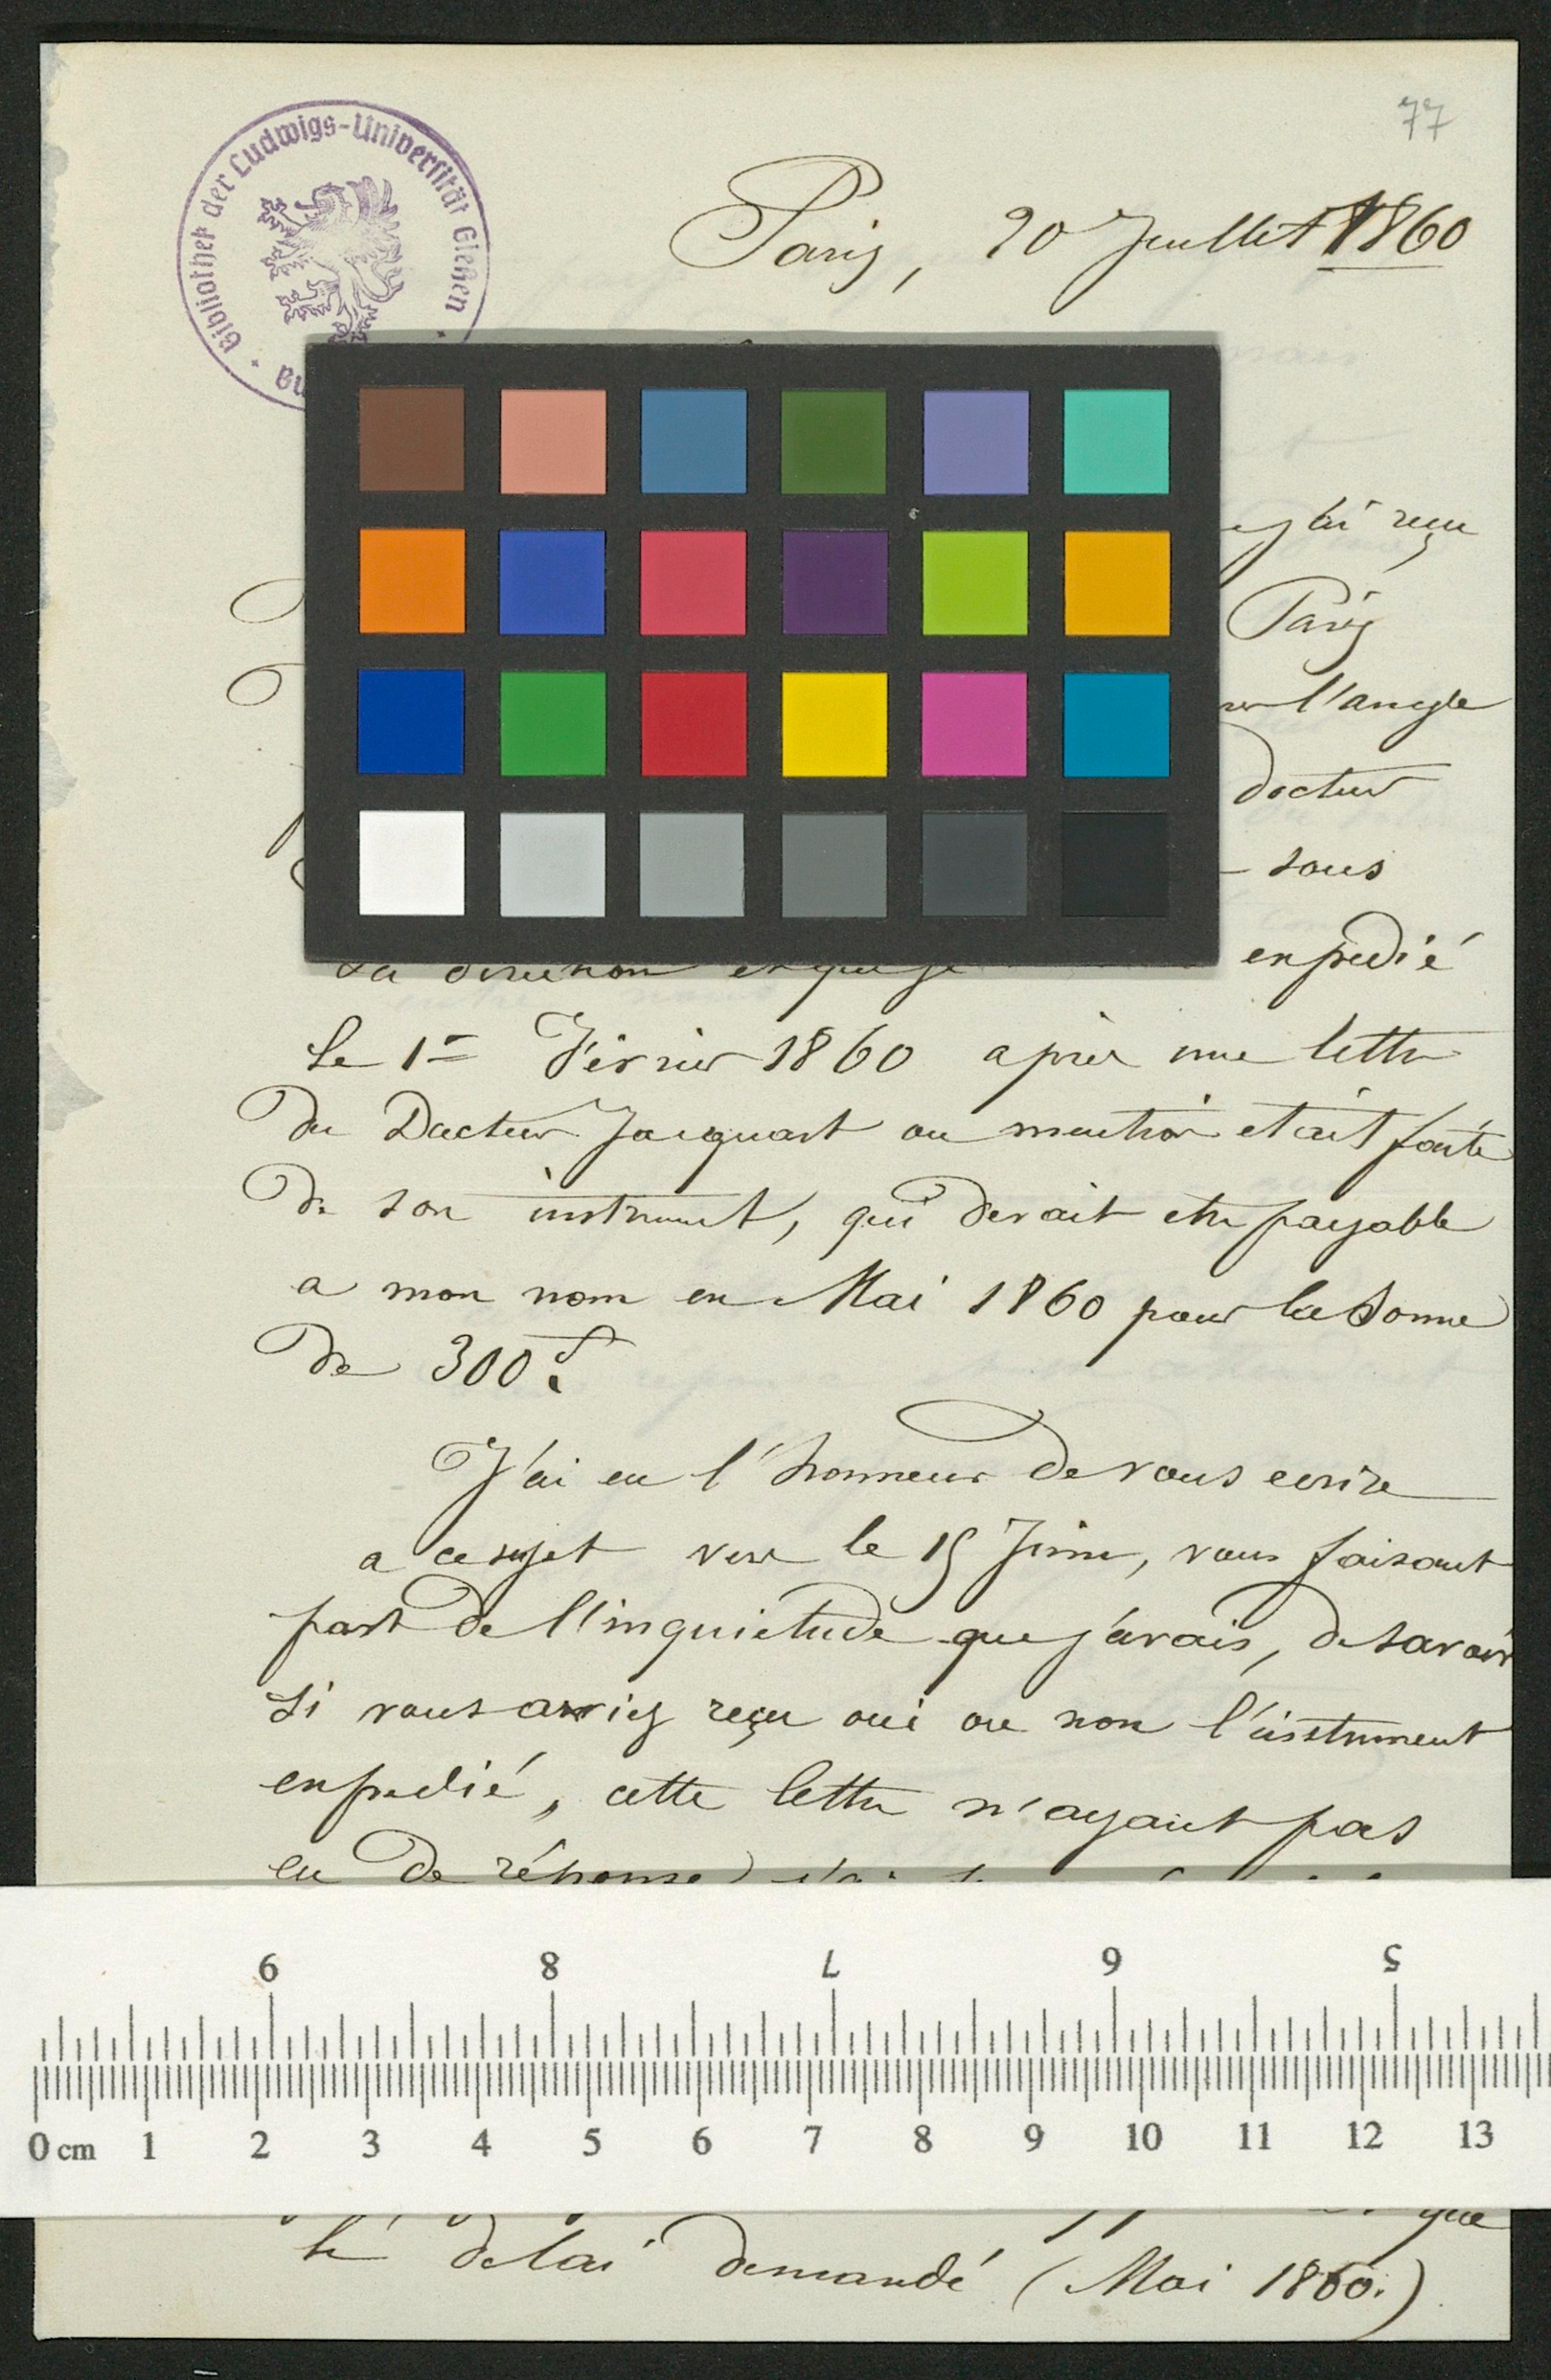 77
Bibliothek der Ludwigs-Universität Gießen
Paris, 20 Juillet 1860
reçu
Paris
l'angle
docteur
sous
la direction expedié
le 1er Février 1860 aprés une lettre
du Docteur Jacquart ou mention etait faite
de son instrument, qui devait etre payable
a mon nom en Mai 1860 pour la Somme
de 300f.
J'ai eu l'honneur de vous ecrire
a ce sujet vers le 15 Juin, vous faisant
part de l'inquietude que j'avais, de savoir
si vous aviez reçu oui ou non l'instrument
expedié, cette lettre n'ayant pas
eu de réponse
6 8 7 6 5
0 cm 1 2 3 4 5 6 7 8 9 10 11 12 13
que
le délai demandé (Mai 1860.)